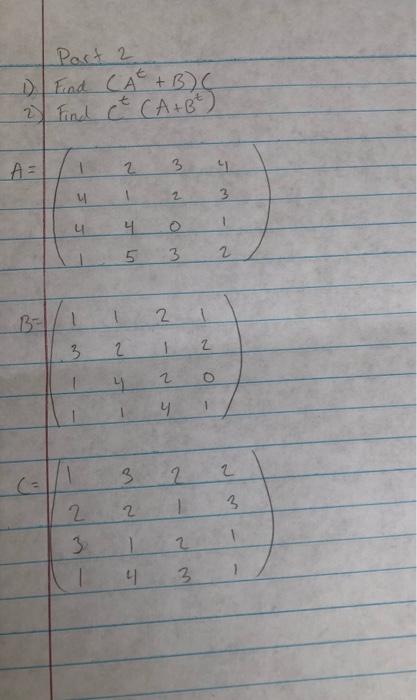 Part 2
1) Find (A^t + B)C
2) Find C^t (A+B^t)
A = ( 1 2 3 4
4 1 2 3
4 4 0 1
1 5 3 2 )
B= ( 1 1 2 1
3 2 1 2
1 4 2 0
1 1 4 1 )
C= ( 1 3 2 2
2 2 1 3
3 1 2 1
1 4 3 1 )